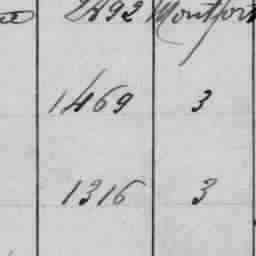 2892 Montfort
1469 3
1316 3